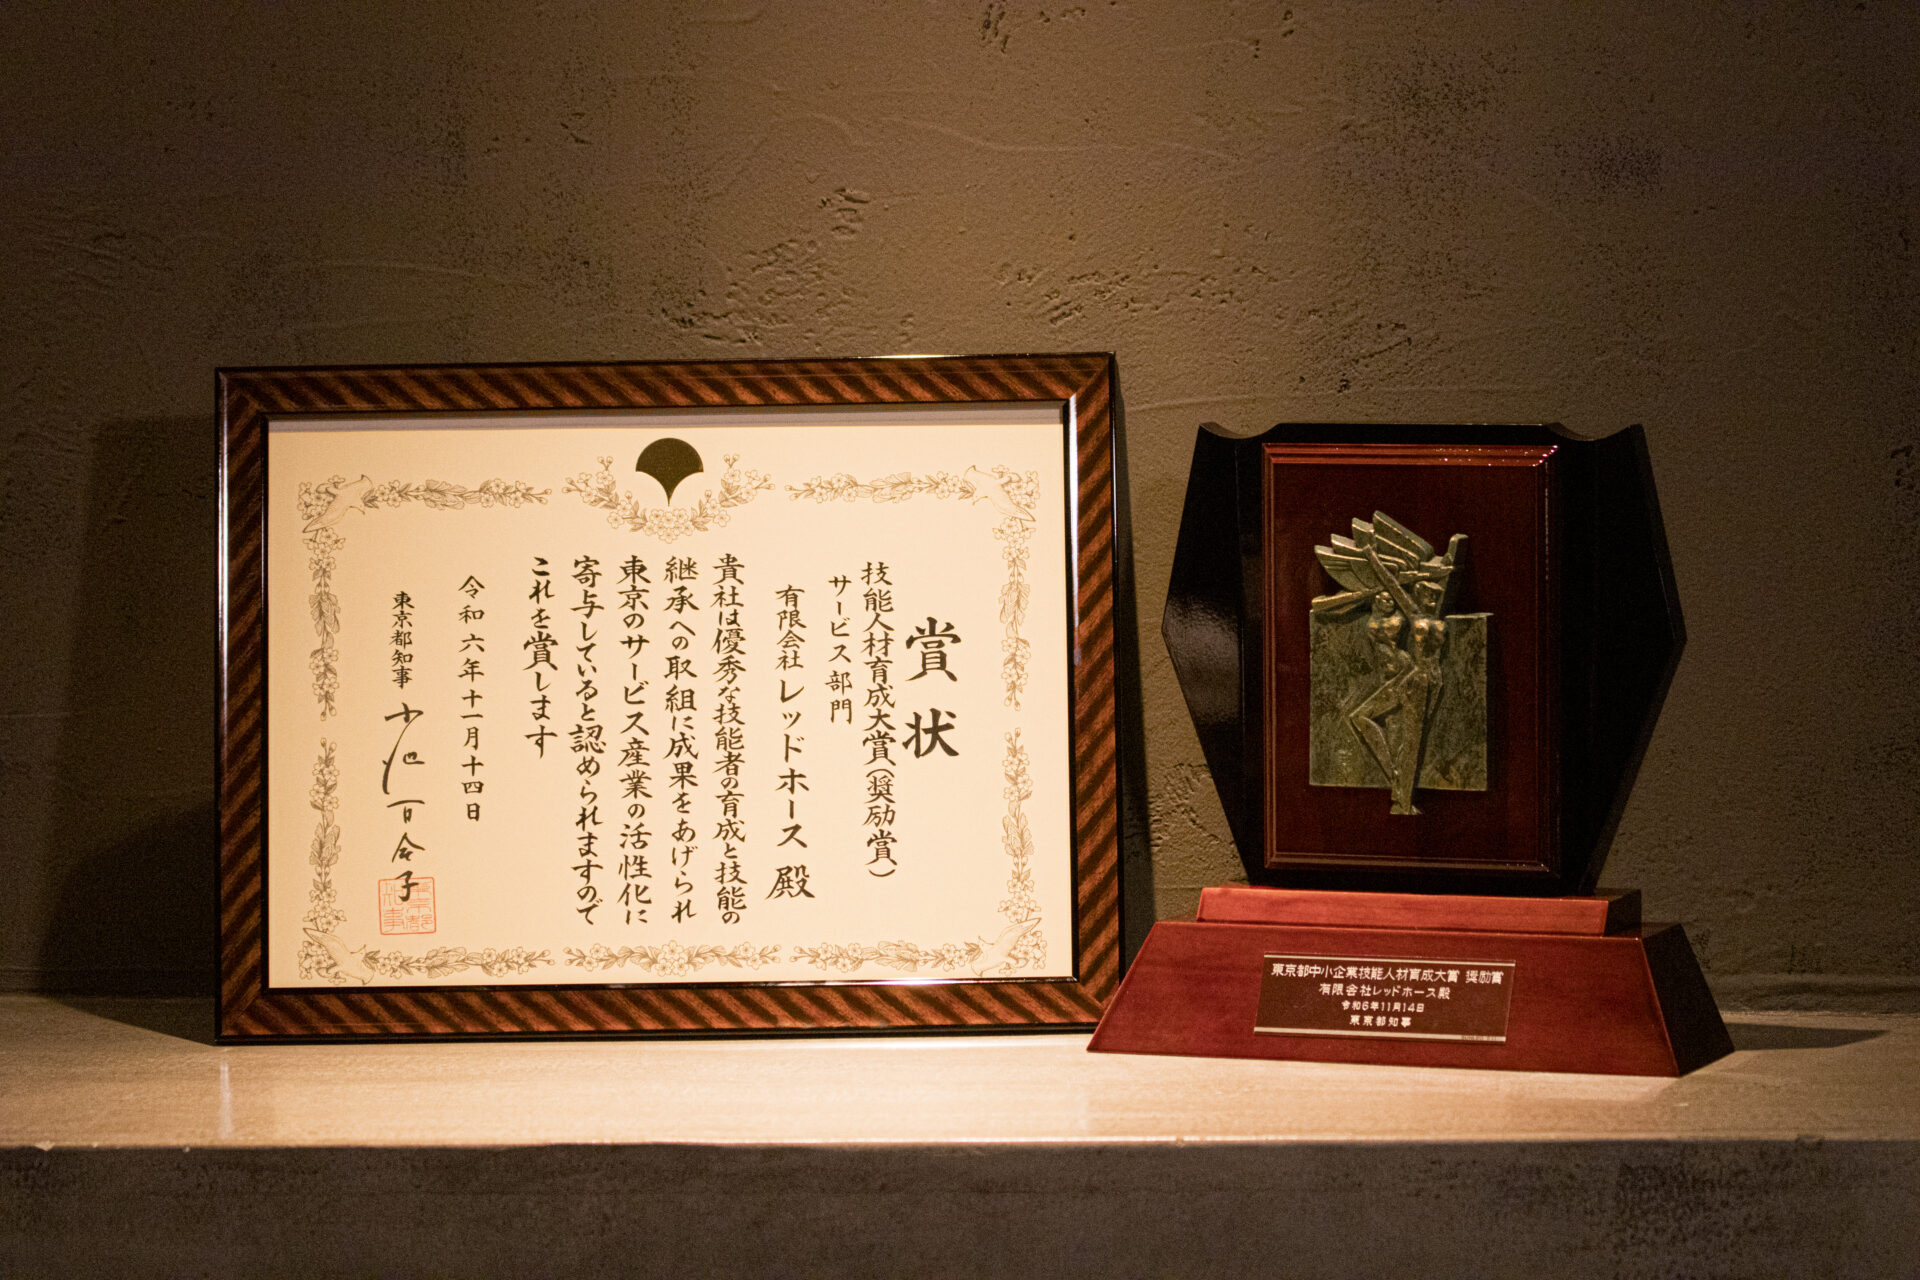 賞状
技能人材育成大賞(奨励賞)
サービス部門
有限会社レッドホース殿
貴社は優秀な技能者の育成と技能の
継承への取組に成果をあげられ
東京のサービス産業の活性化に
寄与していると認められますので
これを賞します
令和六年十一月十四日
東京都知事 小池百合子
東京都知事
東京都中小企業技能人材育成大賞 奨励賞
有限会社レッドホース殿
令和6年11月14日
東京都知事